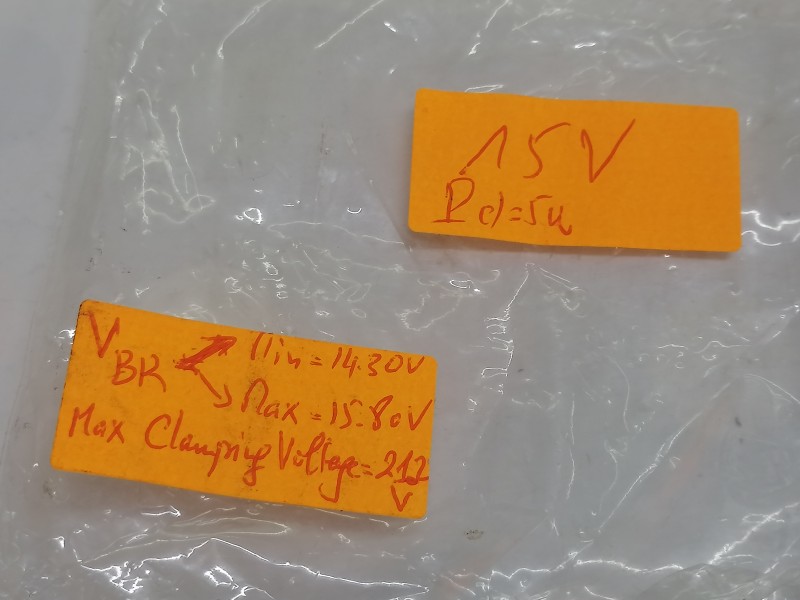 15V
Pd=5W
VBR Min=14.30V
Max=15.80V
Max Clamping Voltage=21.2
V